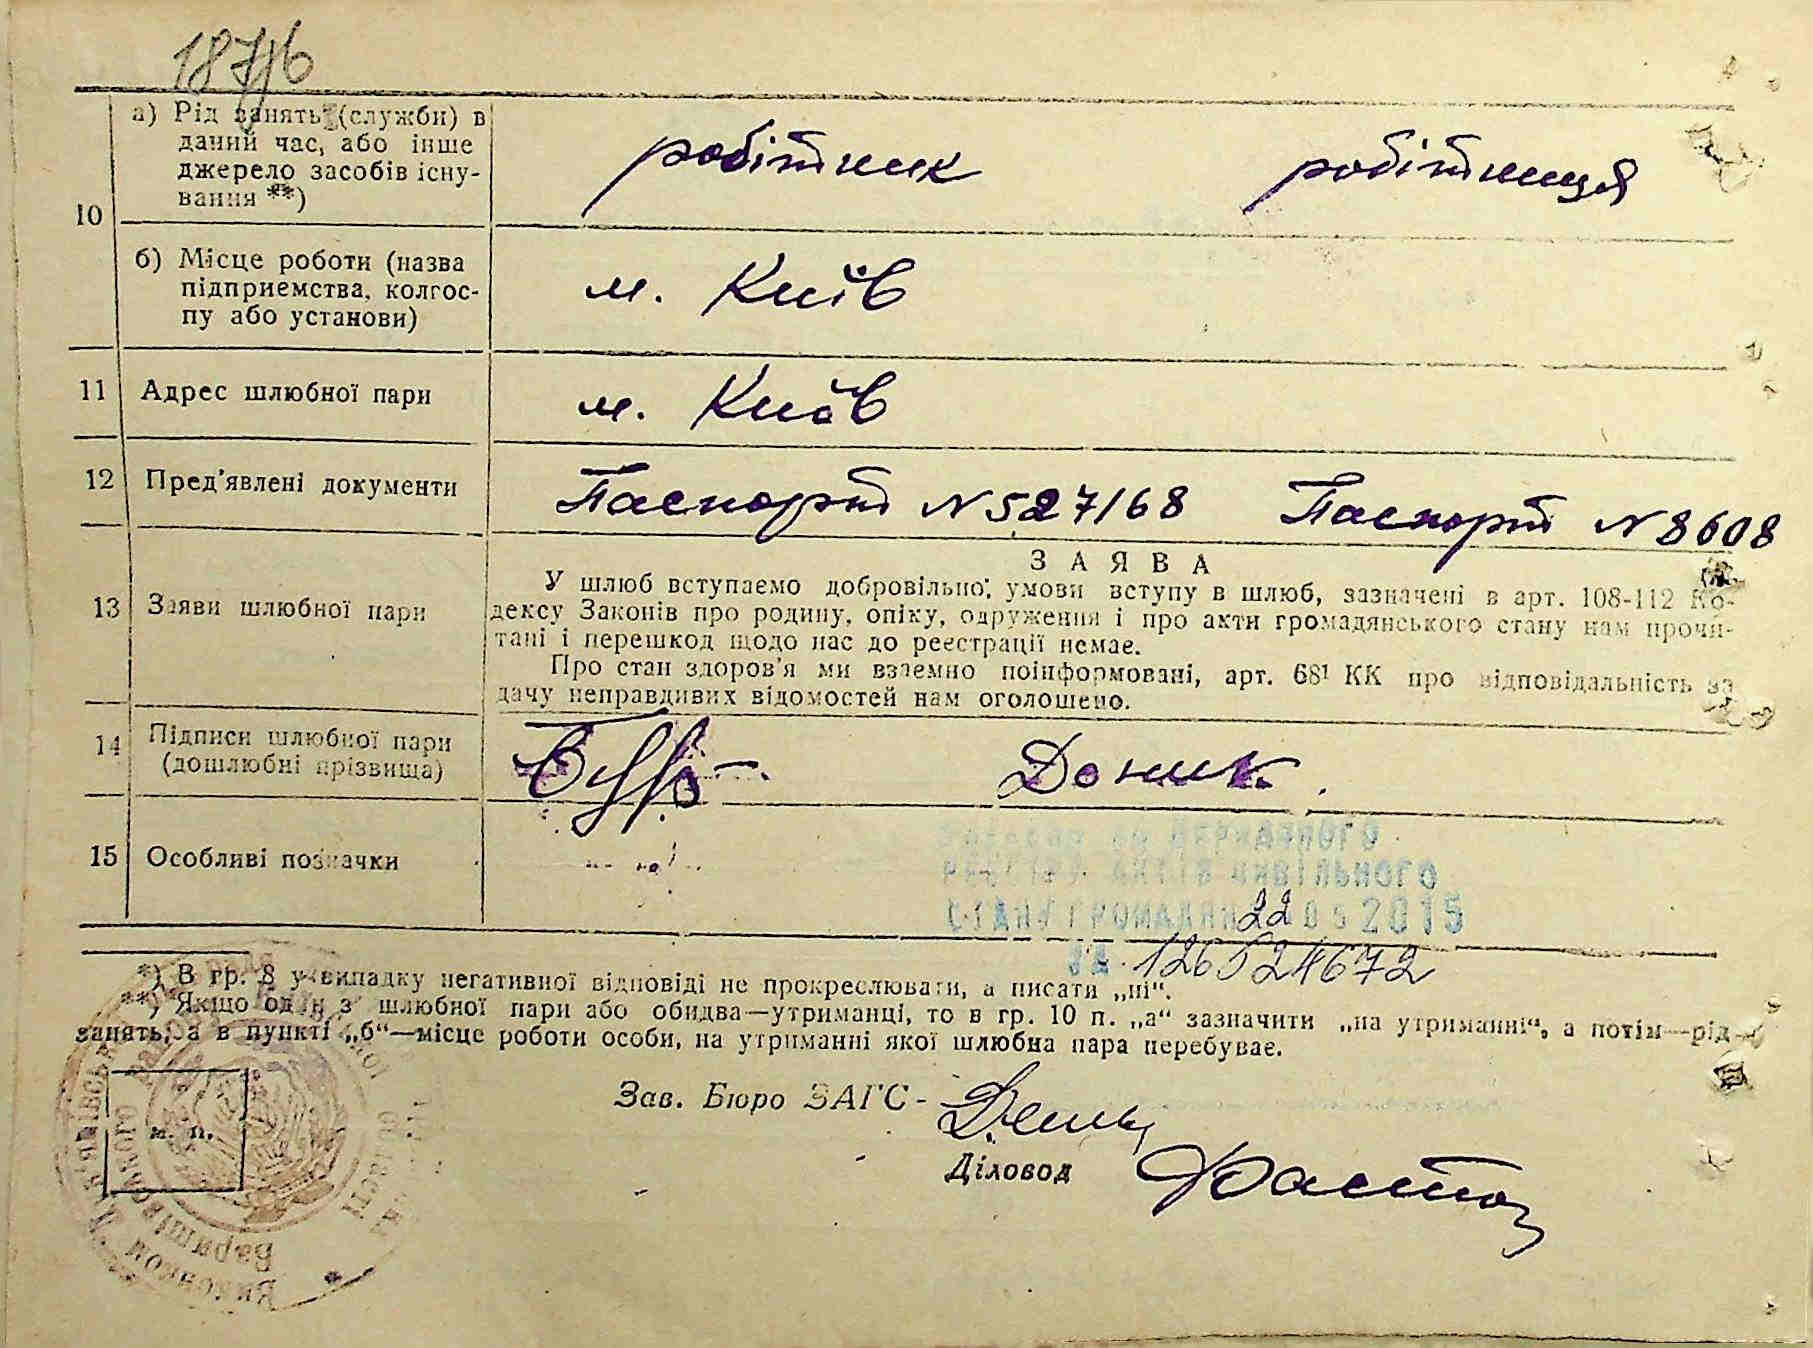 187/16
10
а) Рід занять (служби) в
даний час, або інше
джерело засобів існу-
вання **)
робітник робітниця
б) Місце роботи (назва
підприємства, колгос-
пу або установи)
м. Київ
11 Адрес шлюбної пари
м. Київ
12 Пред'явлені документи
Паспорт N 527168 Паспорт N 8608
13 Заяви шлюбної пари
ЗАЯВА
У шлюб вступаємо добровільно; умови вступу в шлюб, зазначені в арт. 108-112 Ко-
дексу Законів про родину, опіку, одруження і про акти громадянського стану нам прочи-
тані і перешкод щодо нас до реєстрації немає.
Про стан здоров'я ми взаємно поінформовані, арт. 68¹ КК про відповідальність за
дачу неправдивих відомостей нам оголошено.
14 Підписи шлюбної пари
(дошлюбні прізвища)
Доник
15 Особливі позначки
до Державного
реєстру актів цивільного
стану громадян 22 05 2015
за 126524672
*) В гр. 8 у випадку негативної відповіді не прокреслювати, а писати „ні“.
**) Якщо один з шлюбної пари або обидва—утриманці, то в гр. 10 п. „а“ зазначити „на утриманні“, а потім—рід
занять, а в пункті „б“—місце роботи особи, на утриманні якої шлюбна пара перебуває.
Зав. Бюро ЗАГС -
Діловод
м. п.
Виконком
Баришівського
області